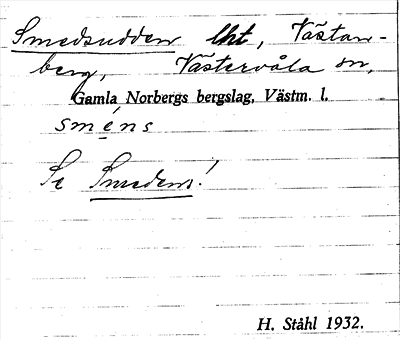 Smedsudden lht, Västan-
berg, Västervåla sn,
Gamla Norbergs bergslag, Västm. l.
sméns
Se Smedens!
H. Ståhl 1932.